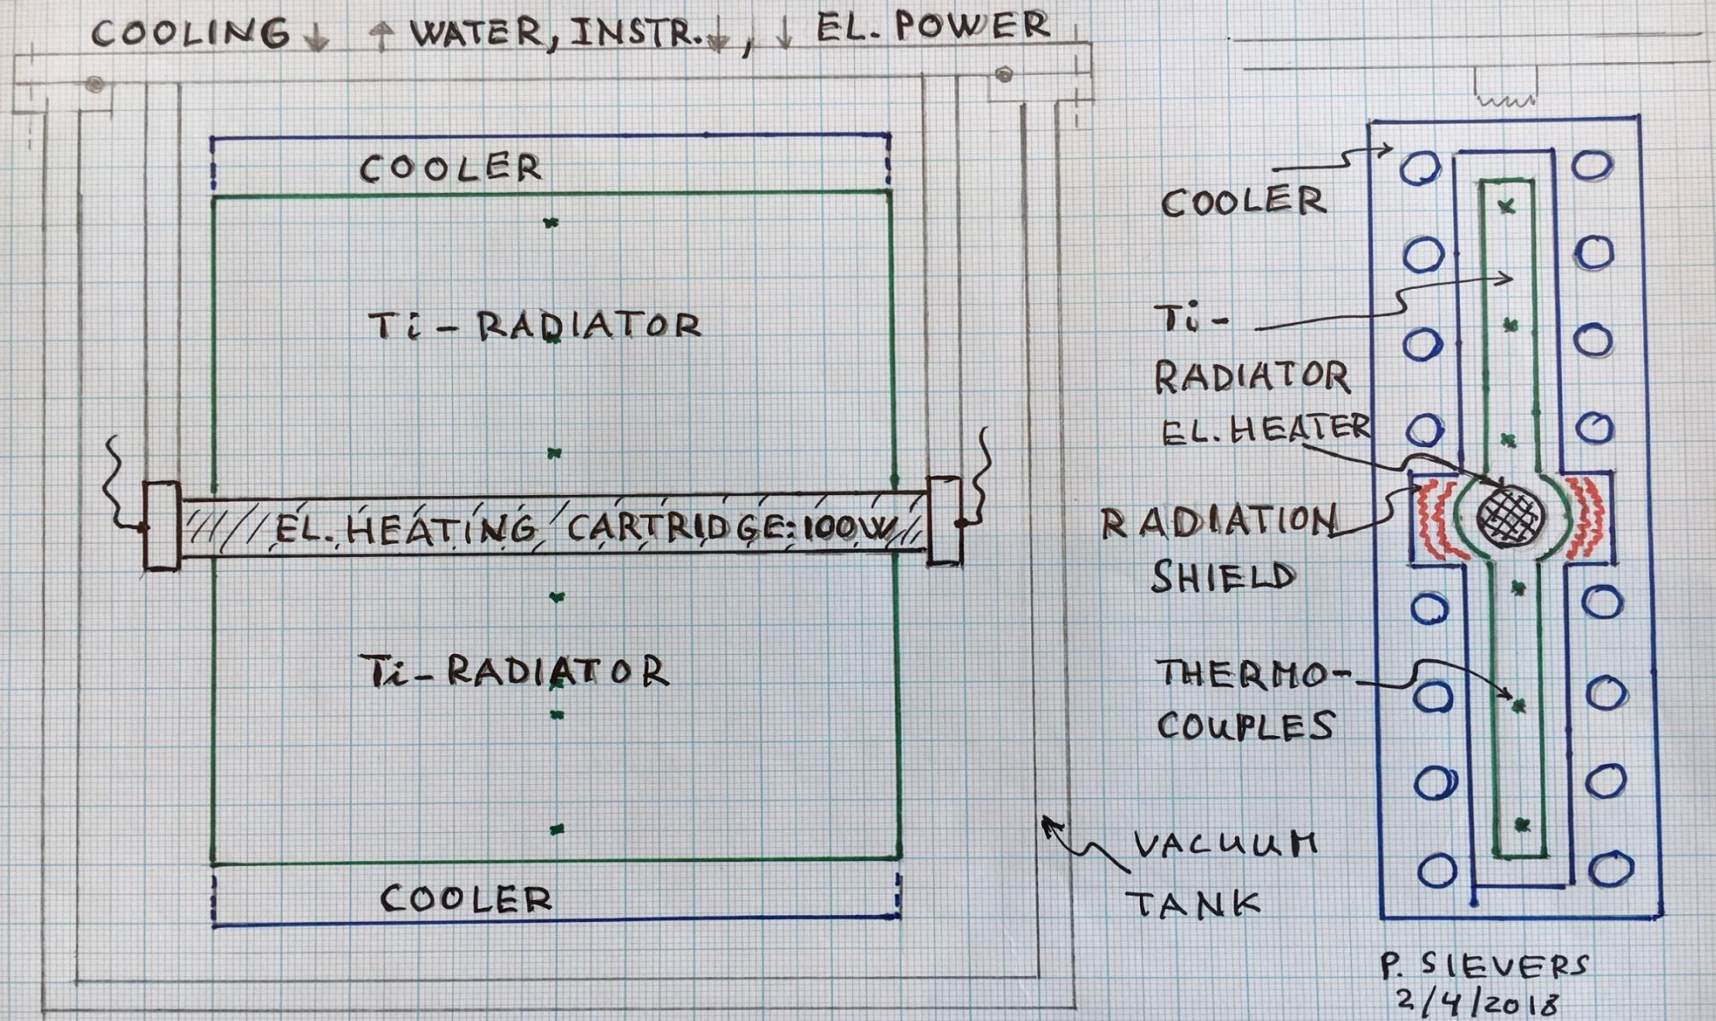 COOLING ↓ ↑ WATER, INSTR.↓, ↓ EL. POWER
COOLER
Ti - RADIATOR
EL. HEATING CARTRIDGE: 100W
Ti - RADIATOR
COOLER
COOLER
Ti -
RADIATOR
EL. HEATER
RADIATION
SHIELD
THERMO-
COUPLES
VACUUM
TANK
P. SIEVERS
2/4/2018